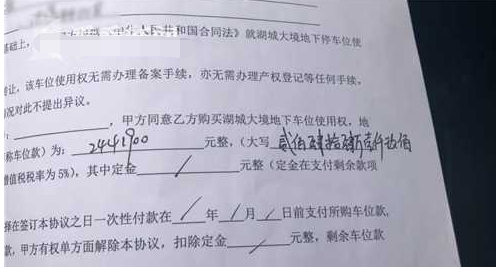 基础上,
人民共和国合同法》就湖城大境地下停车位使
转让,该车位使用权无需办理备案手续,亦无需办理产权登记等任何手续,
情况对此不提出异议。
,甲方同意乙方购买湖城大境地下车位使用权,地
称车位款)为: 2441900 元整,(大写 贰佰肆拾肆
增值税税率为5%),其中定金 / 元整(定金在支付剩余款项
择在签订本协议之日一次性付款在 / 年 / 月 / 日前支付所购车位款,
款,甲方有权单方面解除本协议,扣除定金 / 元整,剩余车位款